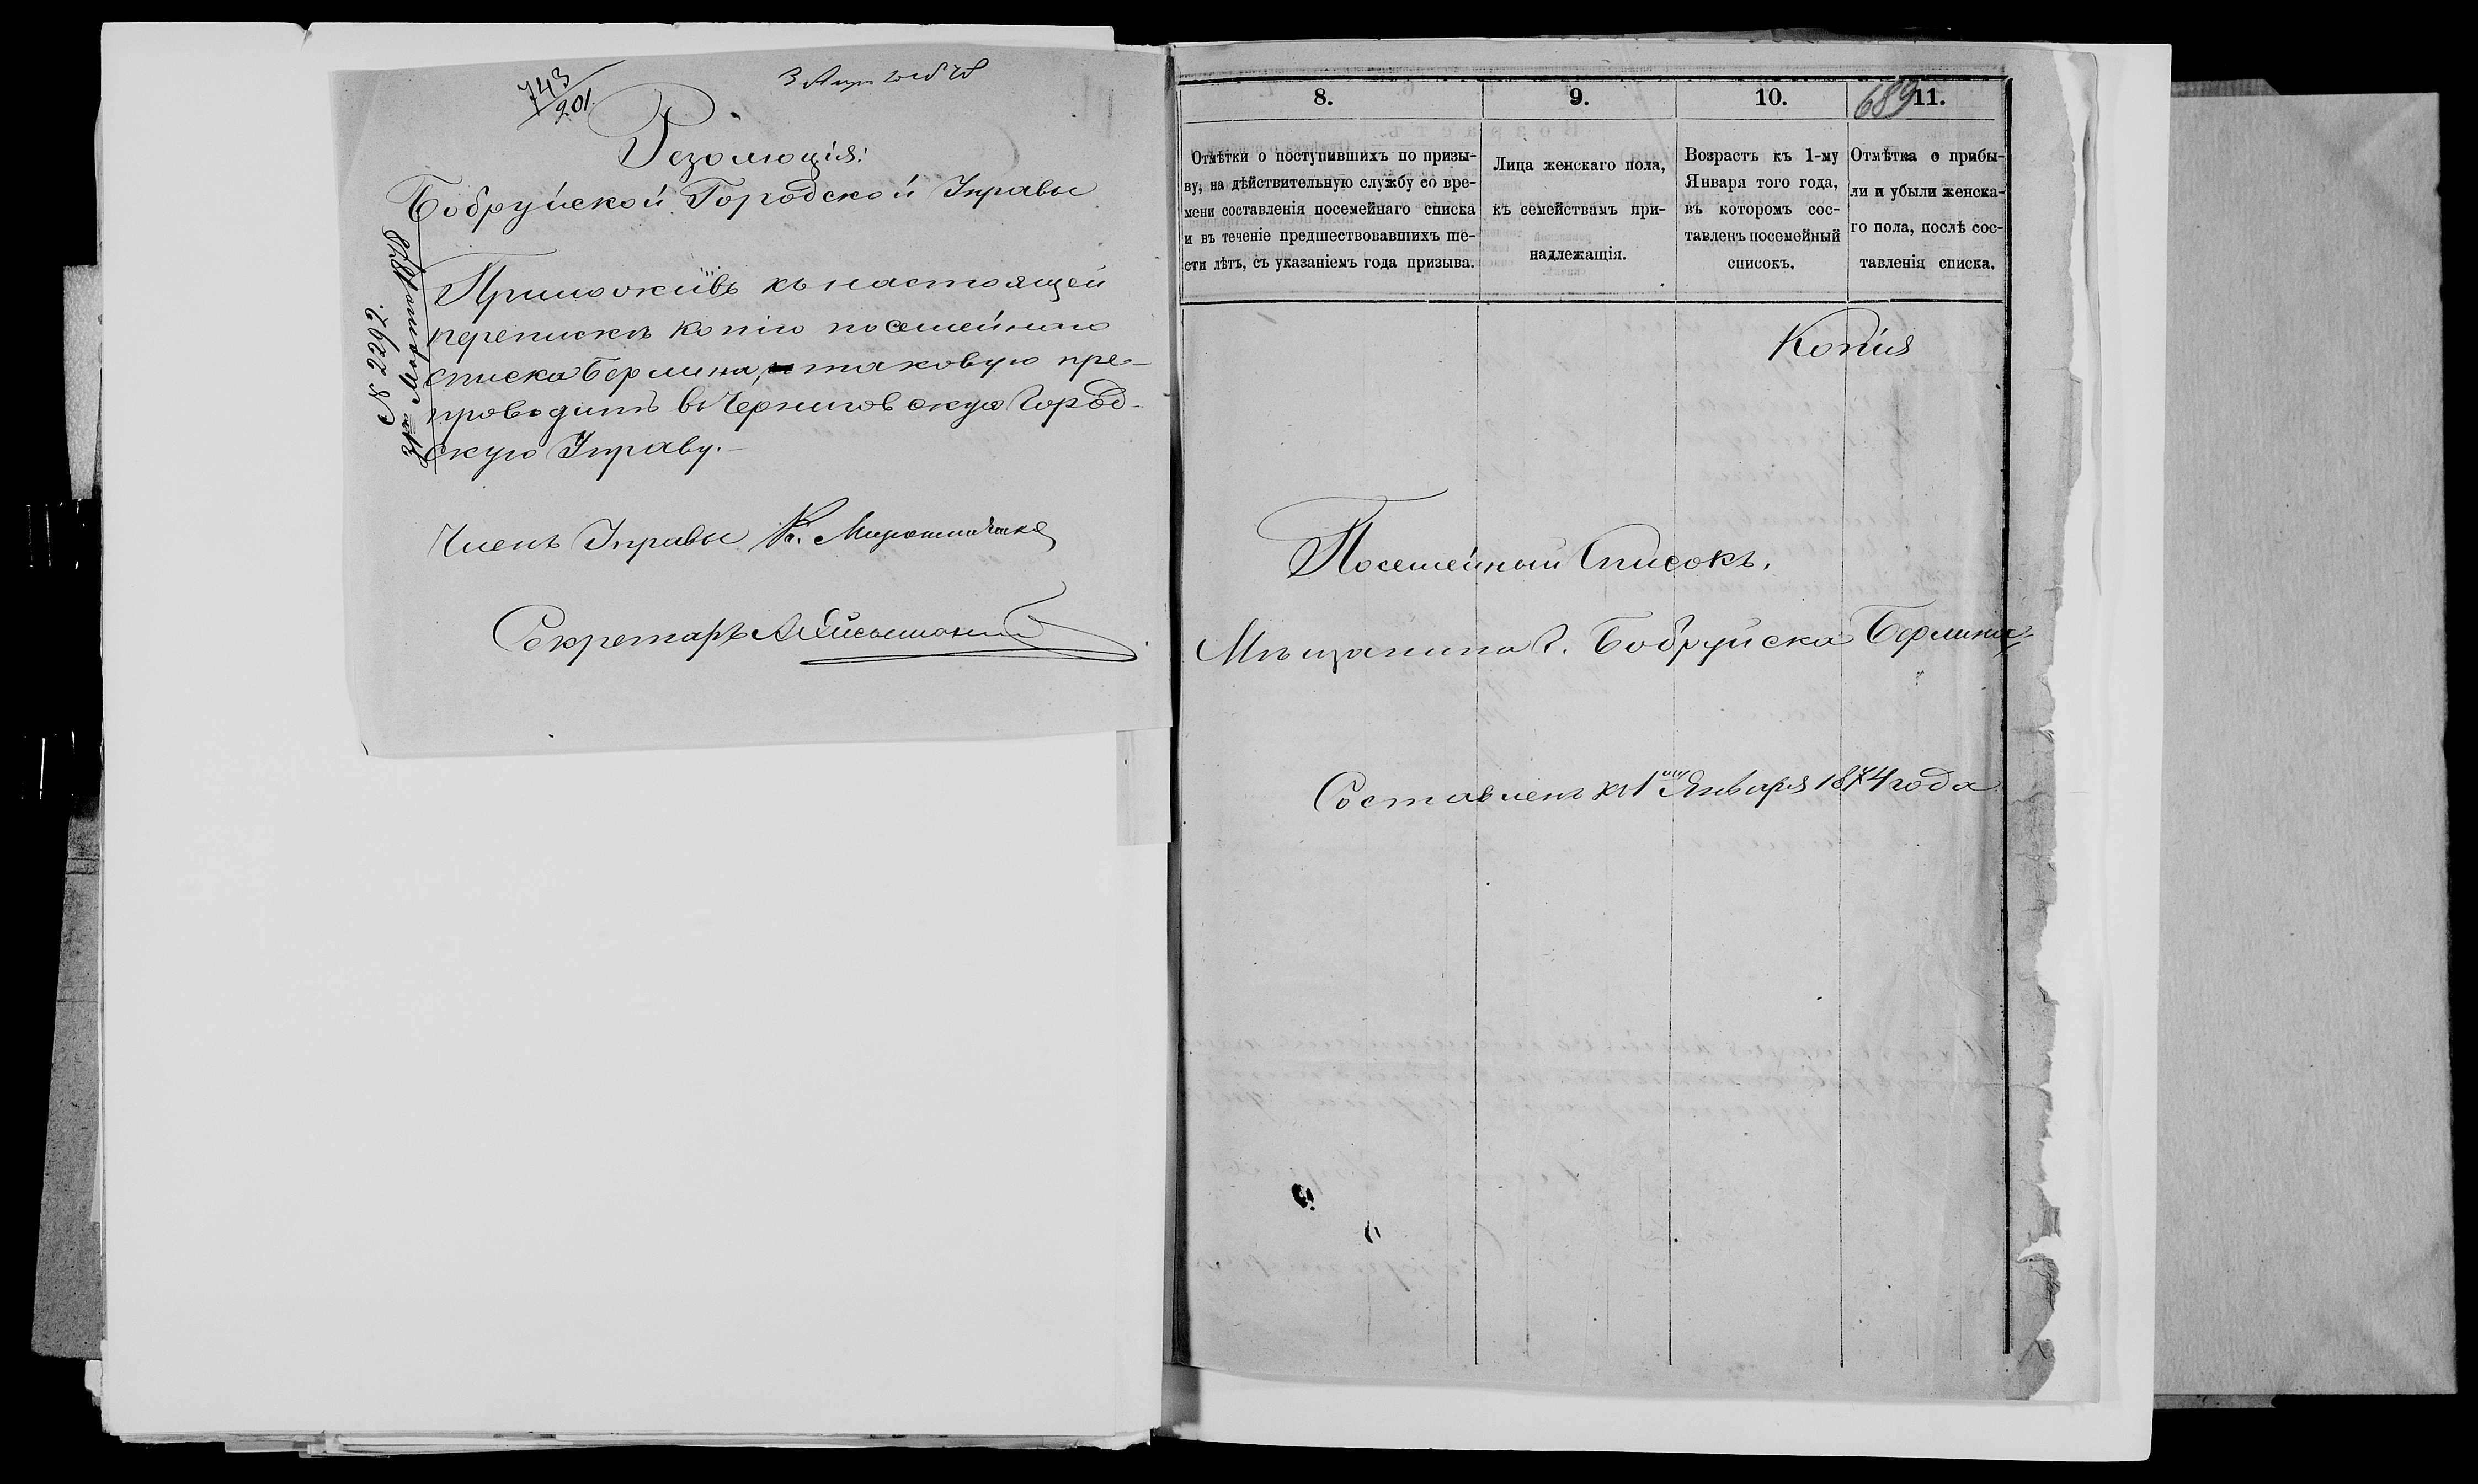 743/901.
3 Апр
Резолюція:
Бобруйской Городской Управы
Приложивъ къ настоящей
перепискѣ копію посемейнаго
списка Берлина, таковую пре-
проводить въ Черниговскую Город-
скую Управу.-
Членъ Управы К.
Секретарь
№ 2292.
689
8.
9.
10.
11.
Отмѣтки о поступившихъ по призы-
ву, на дѣйствительную службу со вре-
мени составленія посемейнаго списка
и въ теченіе предшествовавшихъ ше-
сти лѣтъ, съ указаніемъ года призыва.
Лица женскаго пола,
къ семействамъ при-
надлежащія.
Возрастъ къ 1-му
Января того года,
въ которомъ сос-
тавленъ посемейный
списокъ.
Отмѣтка о прибы-
ли и убыли женска-
го пола, послѣ сос-
тавленія списка.
Копія
Посемейный Списокъ.
Мѣщанина г. Бобруйска Берлина
Составленъ къ 1му Января 1874 года